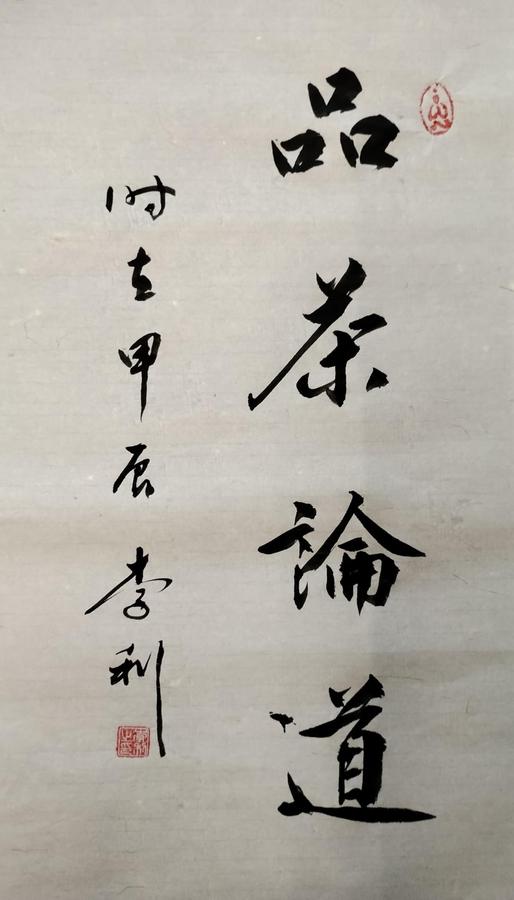 品茶論道
时在甲辰 李利